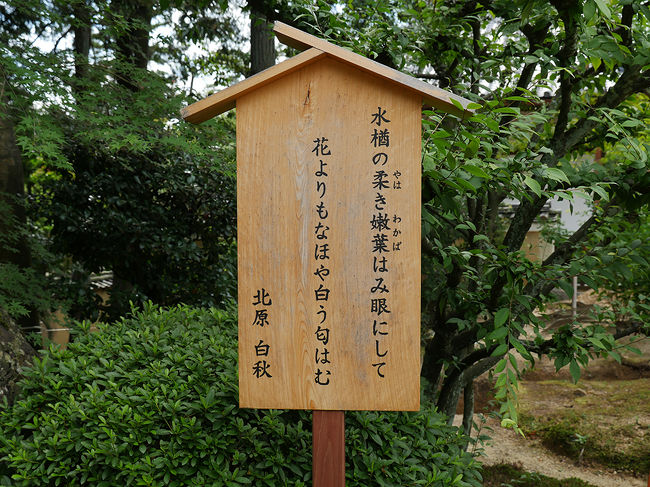 水楢の柔き嫩葉はみ眼にして
やは
わかば
花よりもなほや白う匂はむ
北原 白秋